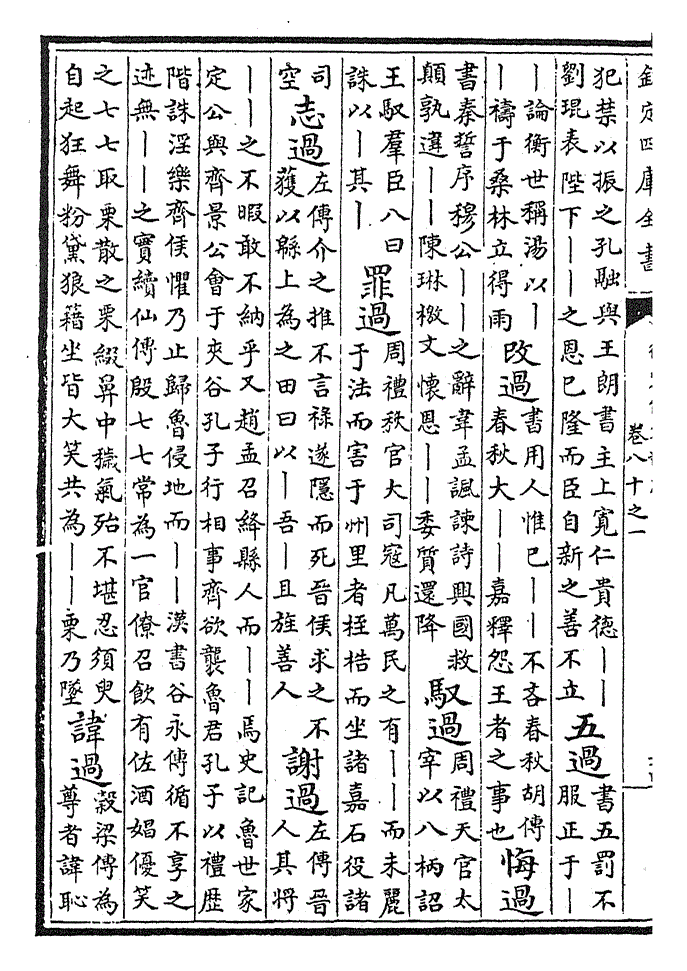 欽定四庫全書
卷八十之一
犯禁以振之孔融與王朗書主上寛仁貴德——
劉琨表陛下——之恩已隆而臣自新之善不立
五過
書五罰不
服正于——
——論衡世稱湯以—
—禱于桑林立得雨
改過
書用人惟已——不吝春秋胡傳
春秋大——嘉釋怨王者之事也
悔過
書秦誓序穆公——之辭韋孟諷諫詩興國救
顛孰違——陳琳檄文懷恩——委質還降
馭過
周禮天官太
宰以八柄詔
王馭羣臣八曰
誅以—其—
罪過
周禮秋官大司寇凡萬民之有——而未麗
于法而害于州里者桎梏而坐諸嘉石役諸
司
空
志過
左傳介之推不言祿遂隱而死晉侯求之不
獲以緜上為之田曰以—吾—且旌善人
謝過
左傳晉
人其將
——之不暇敢不納乎又趙孟召絳縣人而——焉史記魯世家
定公與齊景公會于夾谷孔子行相事齊欲襲魯君孔子以禮歷
階誅淫樂齊侯懼乃止歸魯侵地而——漢書谷永傳循不享之
迹無——之實續仙傳殷七七常為一官僚召飲有佐酒娼優笑
之七七取栗散之栗綴鼻中穢氣殆不堪忍須臾
自起狂舞粉黛狼藉坐皆大笑共為——栗乃墜
諱過
穀梁傳為
尊者諱恥